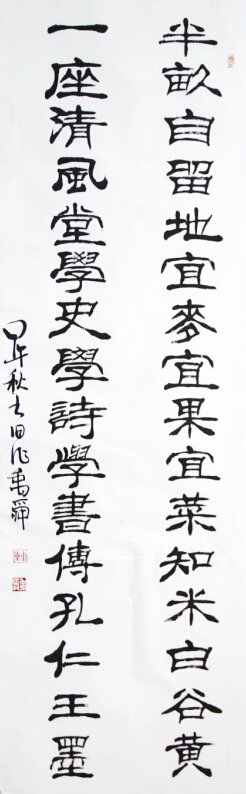 半畝自留地宜麥宜果宜菜知米白谷黄
一座清風堂學史學詩學書傳孔仁王墨
甲午秋吉日化禹舜